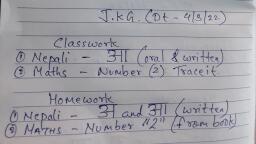 J.K.G. (Dt - 4/3/22)
Classwork
① Nepali - आ (oral & written)
② Maths - Number (2) Trace it
Homework
① Nepali - अ and आ (written)
② MATHS - Number "2" (from book)